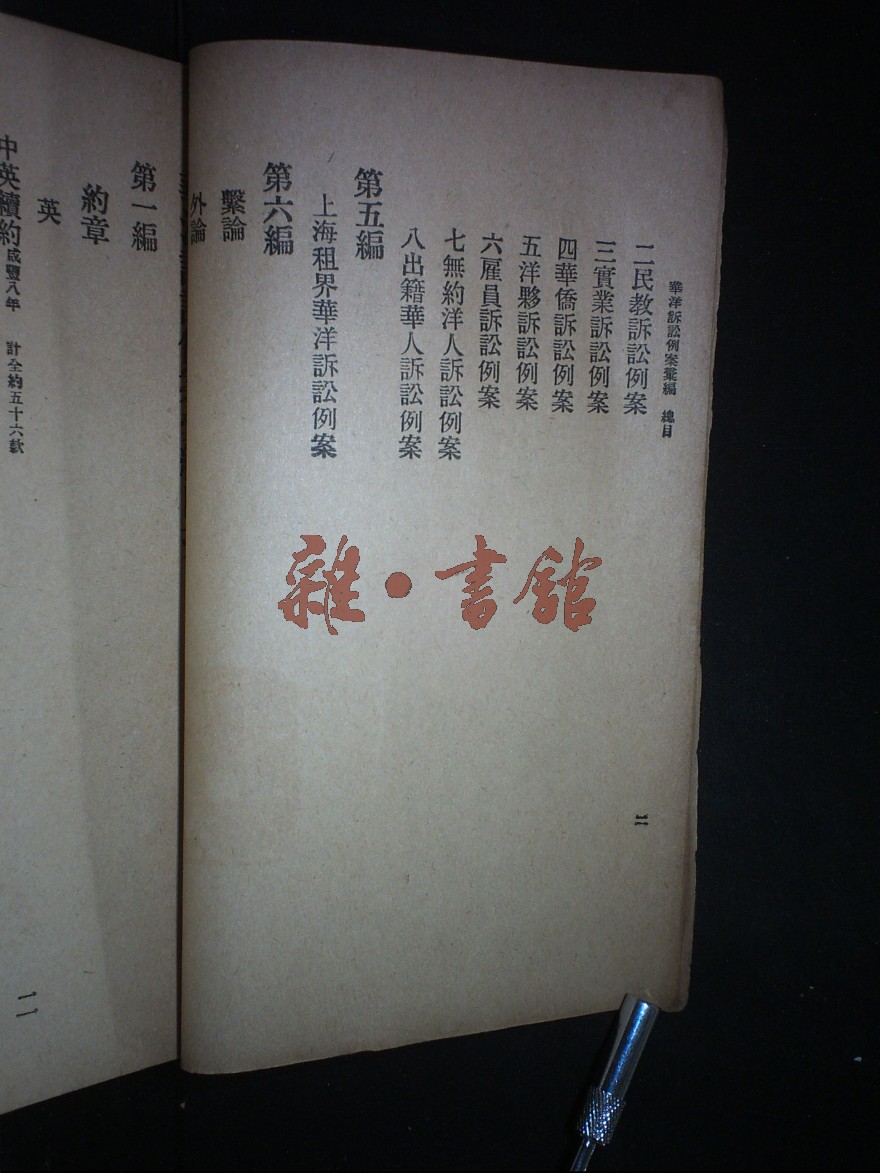 華洋訴訟例案彙編　總目
二民教訴訟例案
三實業訴訟例案
四華僑訴訟例案
五洋夥訴訟例案
六雇員訴訟例案
七無約洋人訴訟例案
八出籍華人訴訟例案
第五編
上海租界華洋訴訟例案
第六編
繫論
外論
二
第一編
約章
英
中英續約咸豐八年　計全約五十六款
雜·書館